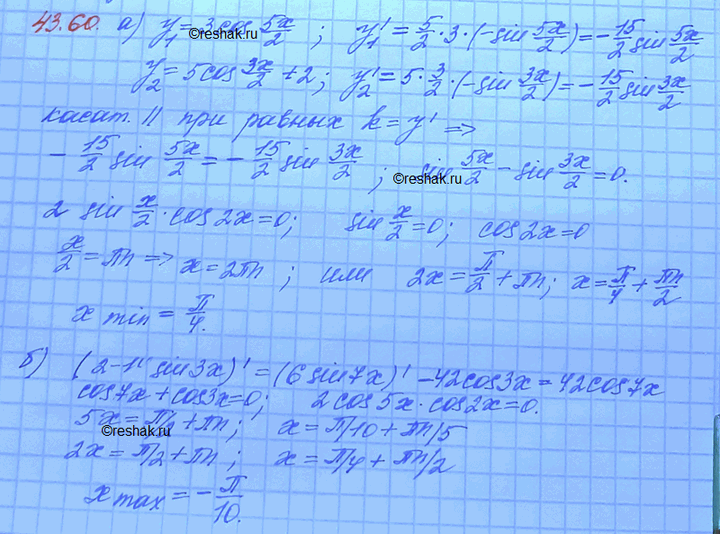 43.60. а) y₁ = 3cos 5x/2 ; y₁' = 5/2 · 3 · (-sin 5x/2) = -15/2 sin 5x/2
©reshak.ru
y₂ = 5cos 3x/2 + 2; y₂' = 5 · 3/2 · (-sin 3x/2) = -15/2 sin 3x/2
касат. || при равных k = y' ⇒
-15/2 sin 5x/2 = -15/2 sin 3x/2 ; sin 5x/2 - sin 3x/2 = 0.
©reshak.ru
2 sin x/2 · cos 2x = 0; sin x/2 = 0; cos 2x = 0
x/2 = πn ⇒ x = 2πn ; или 2x = π/2 + πn; x = π/4 + πn/2
x min = π/4.
б) (2-14 sin 3x)' = (6 sin 7x)' -42cos3x = 42cos7x
cos7x + cos3x = 0; 2 cos 5x · cos2x = 0.
5x = π/2 + πn; x = π/10 + πn/5
©reshak.ru
2x = π/2 + πn ; x = π/4 + πn/2
x max = -π/10.